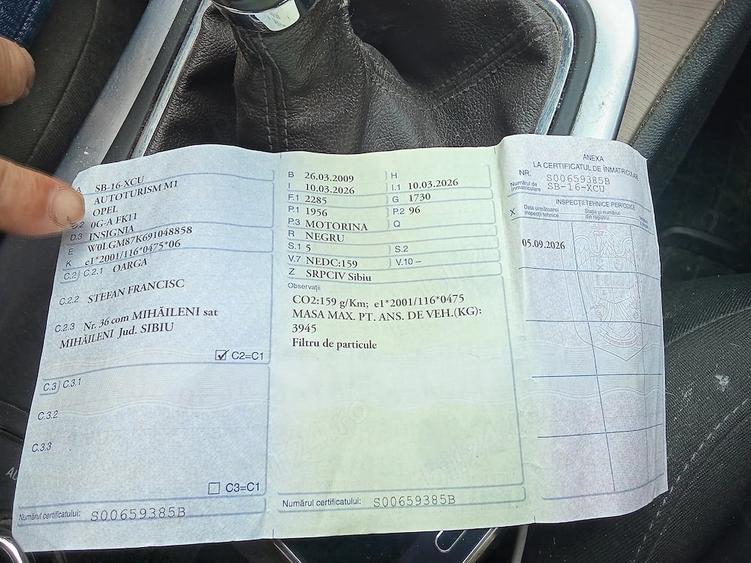 A SB-16-XCU
AUTOTURISM M1
OPEL
D.2 0G-A FK11
D.3 INSIGNIA
E W0LGM87K691048858
K e1*2001/116*0475*06
C.2 C.2.1 OARGA
C.2.2 STEFAN FRANCISC
C.2.3 Nr. 36 com MIHĂILENI sat
MIHĂILENI Jud. SIBIU
C2=C1
C.3 C.3.1
C.3.2
C.3.3
C3=C1
Numărul certificatului: S00659385B
B 26.03.2009 H
I 10.03.2026 I.1 10.03.2026
F.1 2285 G 1730
P.1 1956 P.2 96
P.3 MOTORINA Q
R NEGRU
S.1 5 S.2
V.7 NEDC:159 V.10 –
Z SRPCIV Sibiu
Observații
CO2:159 g/Km; e1*2001/116*0475
MASA MAX. PT. ANS. DE VEH.(KG):
3945
Filtru de particule
Numărul certificatului: S00659385B
ANEXA
LA CERTIFICATUL DE ÎNMATRICULARE
NR. S00659385B
Numărul de înmatriculare SB-16-XCU
INSPECȚII TEHNICE PERIODICE
X Data următoarei inspecții tehnice
Stația și numărul din registru
05.09.2026